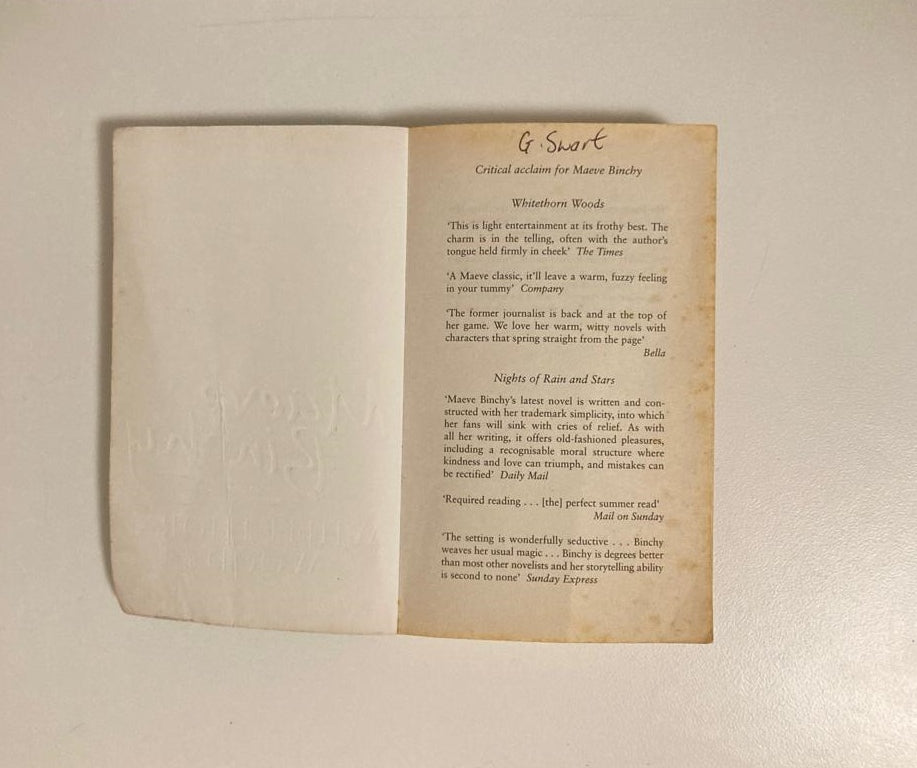 G. Swart
Critical acclaim for Maeve Binchy
Whitethorn Woods
‘This is light entertainment at its frothy best. The
charm is in the telling, often with the author’s
tongue held firmly in cheek’ The Times
‘A Maeve classic, it’ll leave a warm, fuzzy feeling
in your tummy’ Company
‘The former journalist is back and at the top of
her game. We love her warm, witty novels with
characters that spring straight from the page’
Bella
Nights of Rain and Stars
‘Maeve Binchy’s latest novel is written and con-
structed with her trademark simplicity, into which
her fans will sink with cries of relief. As with
all her writing, it offers old-fashioned pleasures,
including a recognisable moral structure where
kindness and love can triumph, and mistakes can
be rectified’ Daily Mail
‘Required reading . . . [the] perfect summer read’
Mail on Sunday
‘The setting is wonderfully seductive . . . Binchy
weaves her usual magic . . . Binchy is degrees better
than most other novelists and her storytelling ability
is second to none’ Sunday Express